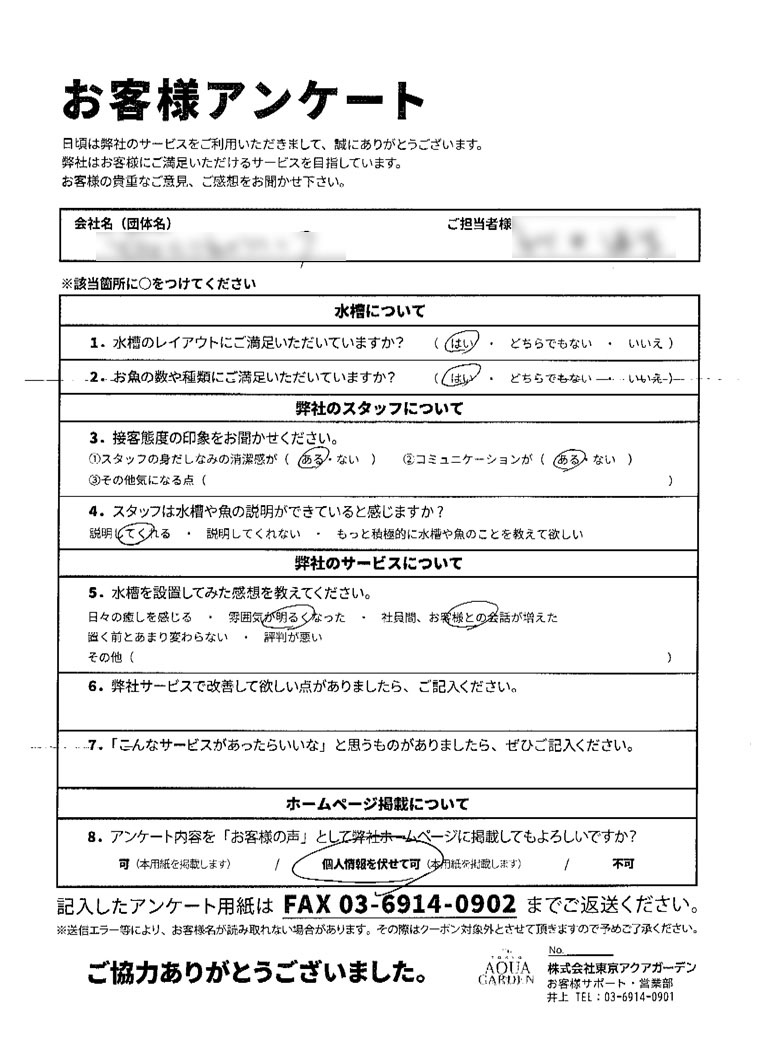 お客様アンケート
日頃は弊社のサービスをご利用いただきまして、誠にありがとうございます。
弊社はお客様にご満足いただけるサービスを目指しています。
お客様の貴重なご意見、ご感想をお聞かせ下さい。
会社名（団体名） ご担当者様
※該当箇所に○をつけてください
水槽について
1. 水槽のレイアウトにご満足いただいていますか？ （ はい ・ どちらでもない ・ いいえ ）
2. お魚の数や種類にご満足いただいていますか？ （ はい ・ どちらでもない ・ いいえ ）
弊社のスタッフについて
3. 接客態度の印象をお聞かせください。
①スタッフの身だしなみの清潔感が（ ある・ない ） ②コミュニケーションが（ ある・ない ）
③その他気になる点（ ）
4. スタッフは水槽や魚の説明ができていると感じますか？
説明してくれる ・ 説明してくれない ・ もっと積極的に水槽や魚のことを教えて欲しい
弊社のサービスについて
5. 水槽を設置してみた感想を教えてください。
日々の癒しを感じる ・ 雰囲気が明るくなった ・ 社員間、お客様との会話が増えた
置く前とあまり変わらない ・ 評判が悪い
その他（ ）
6. 弊社サービスで改善して欲しい点がありましたら、ご記入ください。
7. 「こんなサービスがあったらいいな」と思うものがありましたら、ぜひご記入ください。
ホームページ掲載について
8. アンケート内容を「お客様の声」として弊社ホームページに掲載してもよろしいですか？
可（本用紙を掲載します） / 個人情報を伏せて可（本用紙を掲載します） / 不可
記入したアンケート用紙は FAX 03-6914-0902 までご返送ください。
※送信エラー等により、お客様名が読み取れない場合があります。その際はクーポン対象外とさせて頂きますので予めご了承ください。
ご協力ありがとうございました。
TOKYO
AQUA
GARDEN
No.
株式会社東京アクアガーデン
お客様サポート・営業部
井上 TEL：03-6914-0901